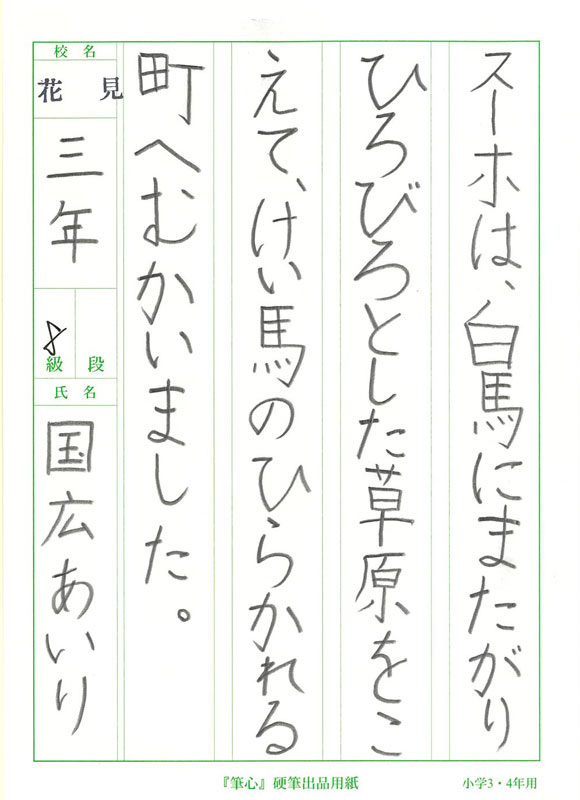 スーホは、白馬にまたがり
ひろびろとした草原をこ
えて、けい馬のひらかれる
町へむかいました。
校名
花見
三年
8
級 段
氏名
国広あいり
『筆心』硬筆出品用紙
小学3・4年用